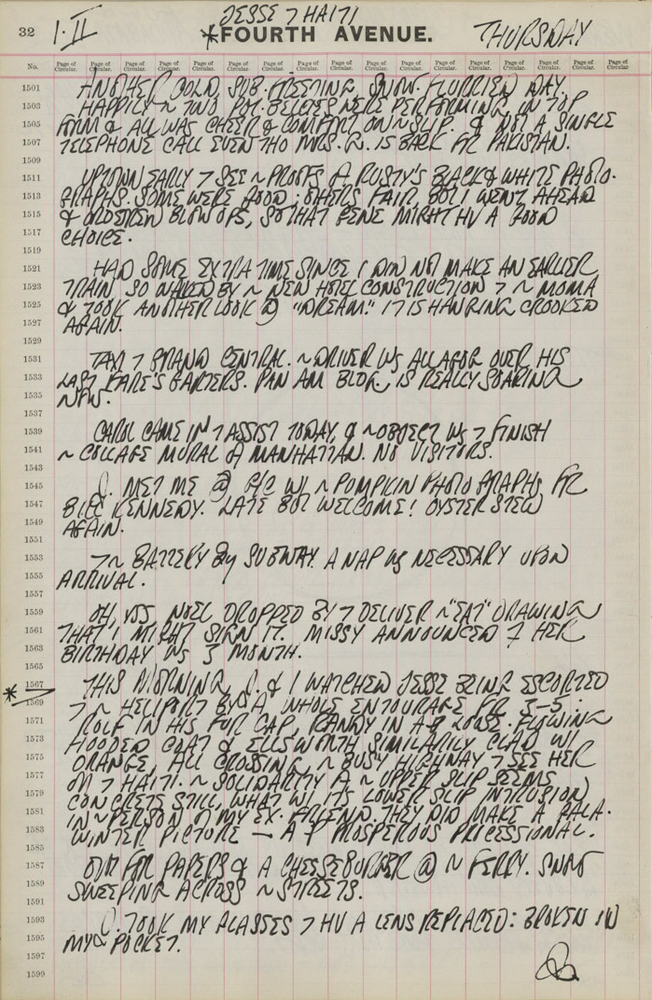 JESSE 7 HAITI
32 1·II *FOURTH AVENUE. THURSDAY
No. Page of Circular. Page of Circular. Page of Circular. Page of Circular. Page of Circular. Page of Circular. Page of Circular. Page of Circular. Page of Circular. Page of Circular. Page of Circular. Page of Circular. Page of Circular. Page of Circular. Page of Circular.
1501 ANOTHER COLD, SUB-FREEZING, SNOW-FLURRIED DAY.
1503 HAPPILY ~ TWO P.M. BELCHES WERE PERFORMING IN TOP
1505 FORM & ALL WAS CHEER & COMFORT ON ~ SLIP. & NOT A SINGLE
1507 TELEPHONE CALL EVEN THO MRS. R. IS BACK FR PAKISTAN.
1509
1511 UPTOWN EARLY 7 SEE ~ PROOFS OF RUSTY'S BLACK & WHITE PHOTO-
1513 GRAPHS. SOME WERE GOOD; OTHERS FAIR, BUT I WENT AHEAD
1515 & ORDERED BLOW UPS, SO THAT GENE MIGHT HV A GOOD
1517 CHOICE.
1519
1521 HAD SOME EXTRA TIME SINCE I DID NOT MAKE AN EARLIER
1523 TRAIN SO WALKED BY ~ NEW HOTEL CONSTRUCTION 7 ~ MOMA
1525 & TOOK ANOTHER LOOK @ "DREAM." IT IS HANGING CROOKED
1527 AGAIN.
1529
1531 TAXI 7 GRAND CENTRAL. ~ DRIVER WS ALL AGOG OVER HIS
1533 LAST FARE'S GARTERS. PAN AM BLDG. IS REALLY SOARING
1535 NOW.
1537
1539 CAROL CAME IN 7 ASSIST TODAY, & ~ OBJECT WS 7 FINISH
1541 ~ COLLAGE MURAL OF MANHATTAN. NO VISITORS.
1543
1545 Q. MET ME @ G/C W/ ~ PUMPKIN PHOTOGRAPHS FR
1547 BILL KENNEDY. LATE BUT WELCOME! OYSTER STEW
1549 AGAIN.
1551
1553 7 ~ BATTERY BY SUBWAY. A NAP WS NECESSARY UPON
1555 ARRIVAL.
1557
1559 OH, YES, NOEL DROPPED BY 7 DELIVER ~ "EAT" DRAWING
1561 THAT I MIGHT SIGN IT. MISSY ANNOUNCED 7 HER
1563 BIRTHDAY WS 3 MONTH.
1565
1567 * THIS MORNING, Q. & I WATCHED JESSE BEING ESCORTED
1569 7 ~ HELIPORT BY A WHOLE ENTOURAGE FR 3-5:
1571 ROLF IN HIS FUR CAP, RANDY IN A LOOSE-FLOWING
1573 HOODED COAT & ELLSWORTH SIMILARILY CLAD W/
1575 ORANGE, ALL CROSSING ~ BUSY HIGHWAY 7 SEE HER
1577 OFF 7 HAITI. ~ SOLIDARITY OF ~ UPPER SLIP SEEMS
1579 CONCRETE STILL, WHAT W/ ITS LOWER SLIP INTRUSION
1581 IN ~ PERSON OF MY EX-FRIEND. THEY DID MAKE A GALA
1583 WINTER PICTURE — A PROSPEROUS PROCESSIONAL.
1585
1587 OUT FOR PAPERS & A CHEESEBURGER @ ~ FERRY. SNOW
1589 SWEEPING ACROSS ~ STREETS.
1591
1593 Q. TOOK MY GLASSES 7 HV A LENS REPLACED: BROKEN IN
1595 MY POCKET.
1597
1599